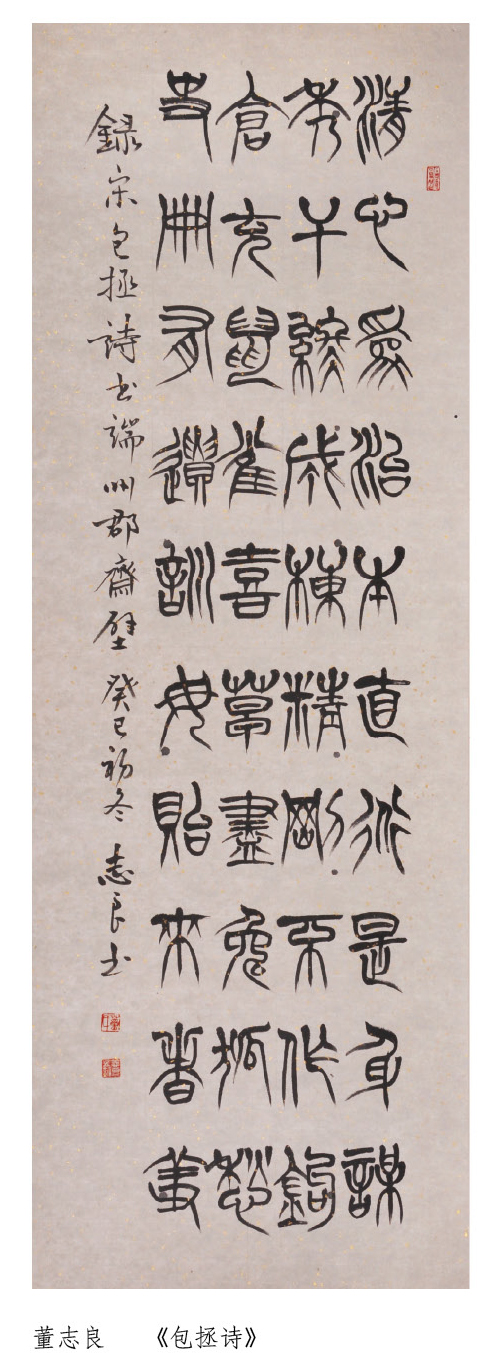 清心為治本直道是身謀
秀干終成棟精剛不作鉤
倉充鼠雀喜草盡兔狐愁
史冊有遺訓毋貽來者羞
錄宋包拯詩書端州郡齋壁 癸巳初冬 志良書
董志良 《包拯诗》